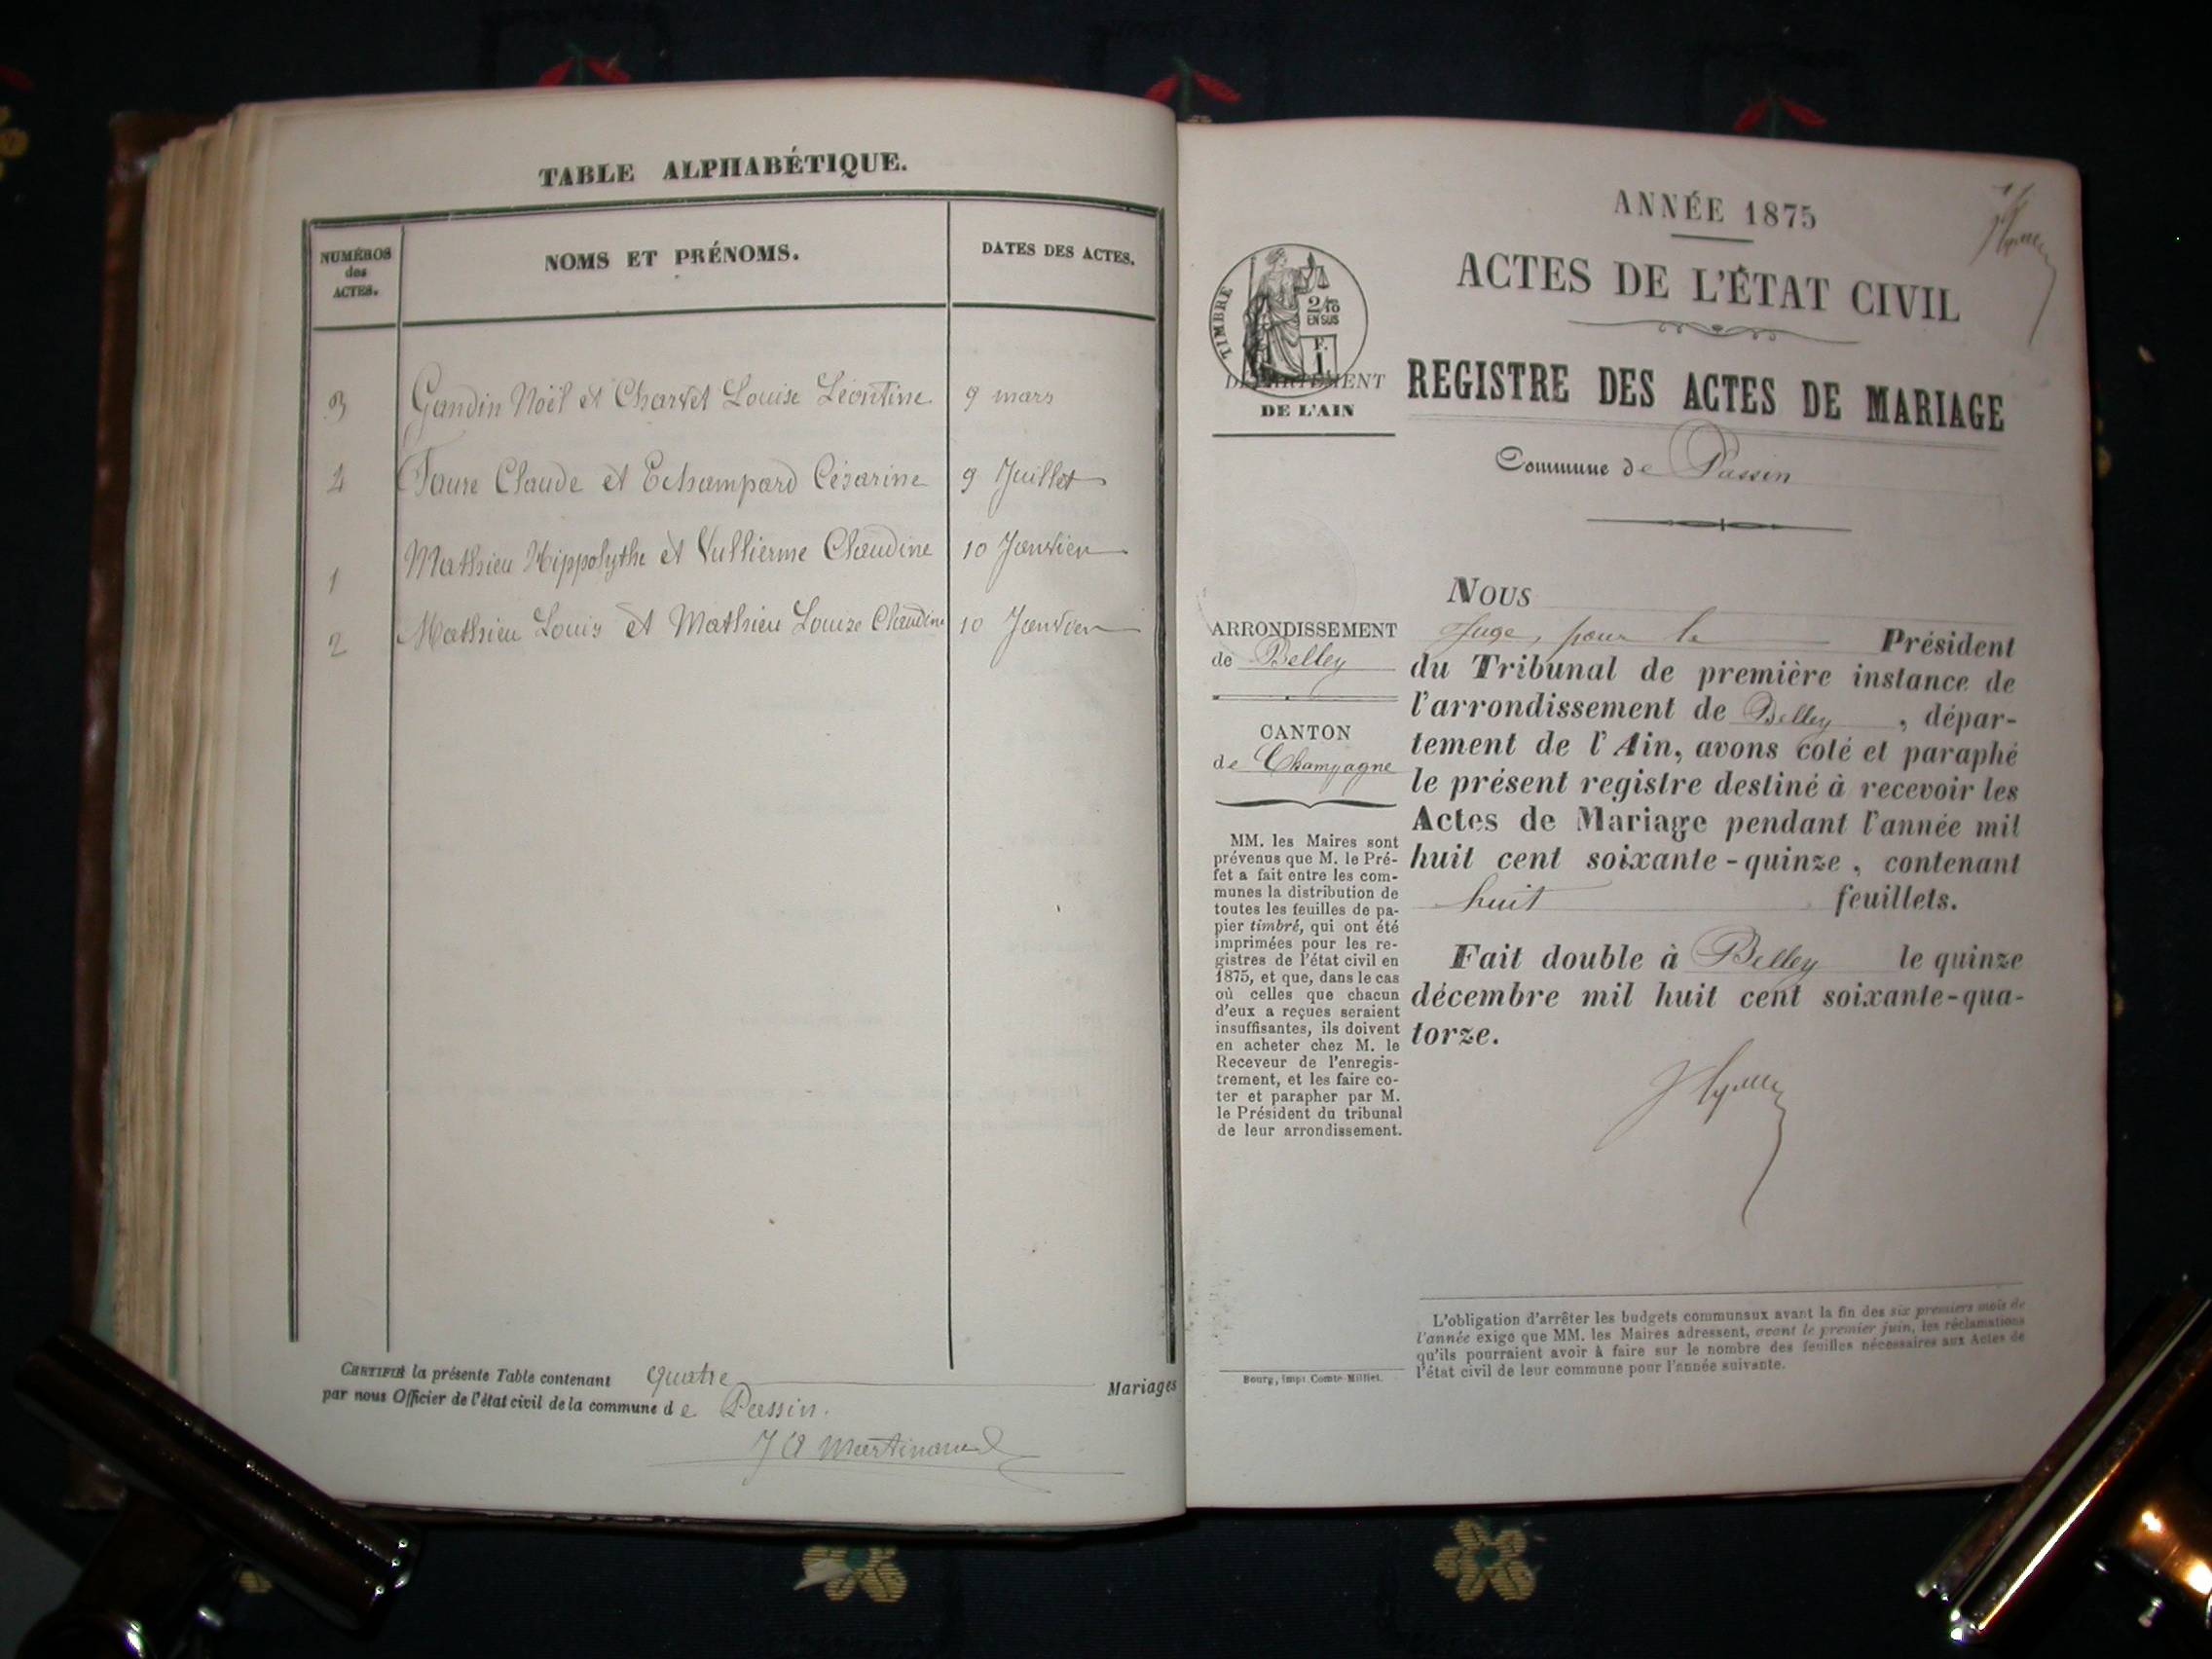 TABLE ALPHABÉTIQUE.
NUMÉROS
des
ACTES.
NOMS ET PRÉNOMS.
DATES DES ACTES.
3 Gandin Noël et Charvet Louise Léontine 9 mars
4 Faure Claude et Echampard Césarine 9 Juillet
1 Mathieu Hippolythe et Vullierme Claudine 10 Janvier
2 Mathieu Louis et Mathieu Louise Claudine 10 Janvier
CERTIFIÉ la présente Table contenant quatre Mariages
par nous Officier de l'état civil de la commune de Passin.
J A Martinand
ANNÉE 1875
ACTES DE L'ÉTAT CIVIL
TIMBRE
2/10
EN SUS
F.
1
DÉPARTEMENT
DE L'AIN
REGISTRE DES ACTES DE MARIAGE
Commune de Passin
ARRONDISSEMENT
de Belley
CANTON
de Champagne
MM. les Maires sont
prévenus que M. le Pré-
fet a fait entre les com-
munes la distribution de
toutes les feuilles de pa-
pier timbré, qui ont été
imprimées pour les re-
gistres de l'état civil en
1875, et que, dans le cas
où celles que chacun
d'eux a reçues seraient
insuffisantes, ils doivent
en acheter chez M. le
Receveur de l'enregis-
trement, et les faire co-
ter et parapher par M.
le Président du tribunal
de leur arrondissement.
NOUS
Juge, pour le Président
du Tribunal de première instance de
l'arrondissement de Belley, dépar-
tement de l'Ain, avons coté et paraphé
le présent registre destiné à recevoir les
Actes de Mariage pendant l'année mil
huit cent soixante-quinze, contenant
huit feuillets.
Fait double à Belley le quinze
décembre mil huit cent soixante-qua-
torze.
L'obligation d'arrêter les budgets communaux avant la fin des six premiers mois de
l'année exige que MM. les Maires adressent, avant le premier juin, les réclamations
qu'ils pourraient avoir à faire sur le nombre des feuilles nécessaires aux Actes de
l'état civil de leur commune pour l'année suivante.
Bourg, Impr. Comte-Milliet.